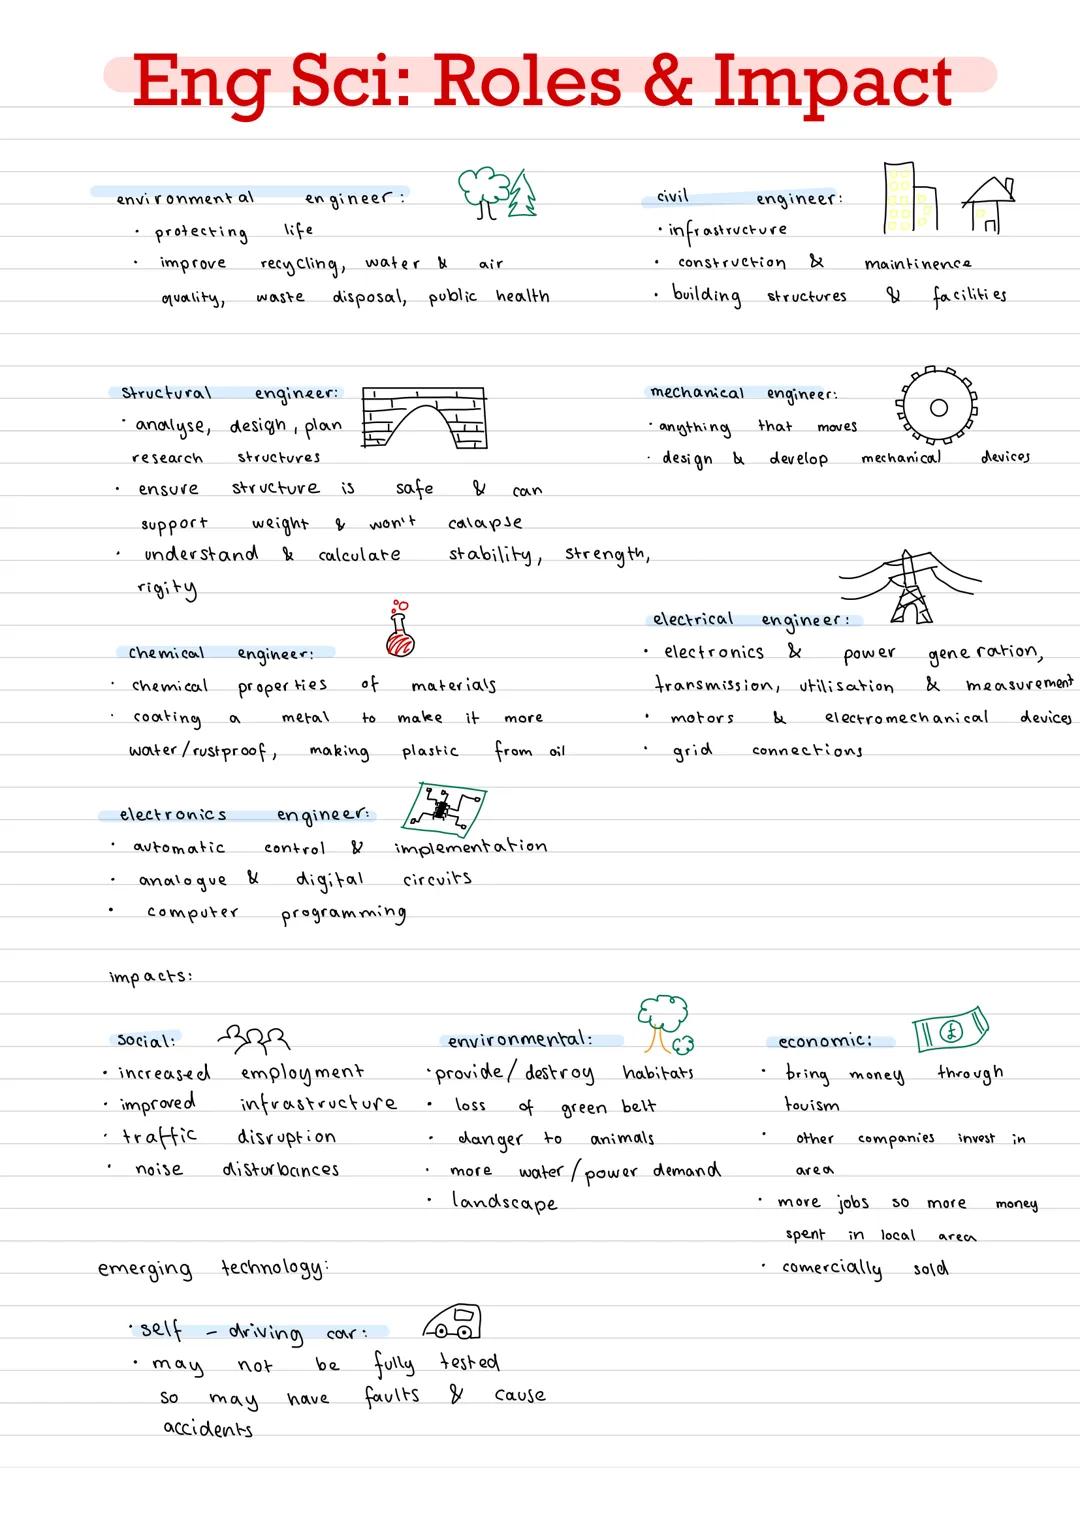 Eng Sci: Roles & Impact
environmental engineer:
• protecting life
• improve recycling, water & air
quality, waste disposal, public health
civil engineer:
• infrastructure
• construction & maintinence
• building structures & facilities
structural engineer:
• analyse, design, plan
research structures
• ensure structure is safe & can
support weight & won't calapse
• understand & calculate stability, strength,
rigity
mechanical engineer:
• anything that moves
• design & develop mechanical devices
chemical engineer:
• chemical properties of materials
• coating a metal to make it more
water/rustproof, making plastic from oil
electrical engineer:
• electronics & power generation,
transmission, utilisation & measurement
• motors & electromechanical devices
• grid connections
electronics engineer:
• automatic control & implementation
• analogue & digital circuits
• computer programming
impacts:
social:
• increased employment
• improved infrastructure
• traffic disruption
• noise disturbances
environmental:
• provide/destroy habitats
• loss of green belt
• danger to animals
• more water/power demand
• landscape
economic:
£
• bring money through
touism
• other companies invest in
area
• more jobs so more money
spent in local area
• comercially sold
emerging technology:
• self-driving car:
• may not be fully tested
so may have faults & cause
accidents